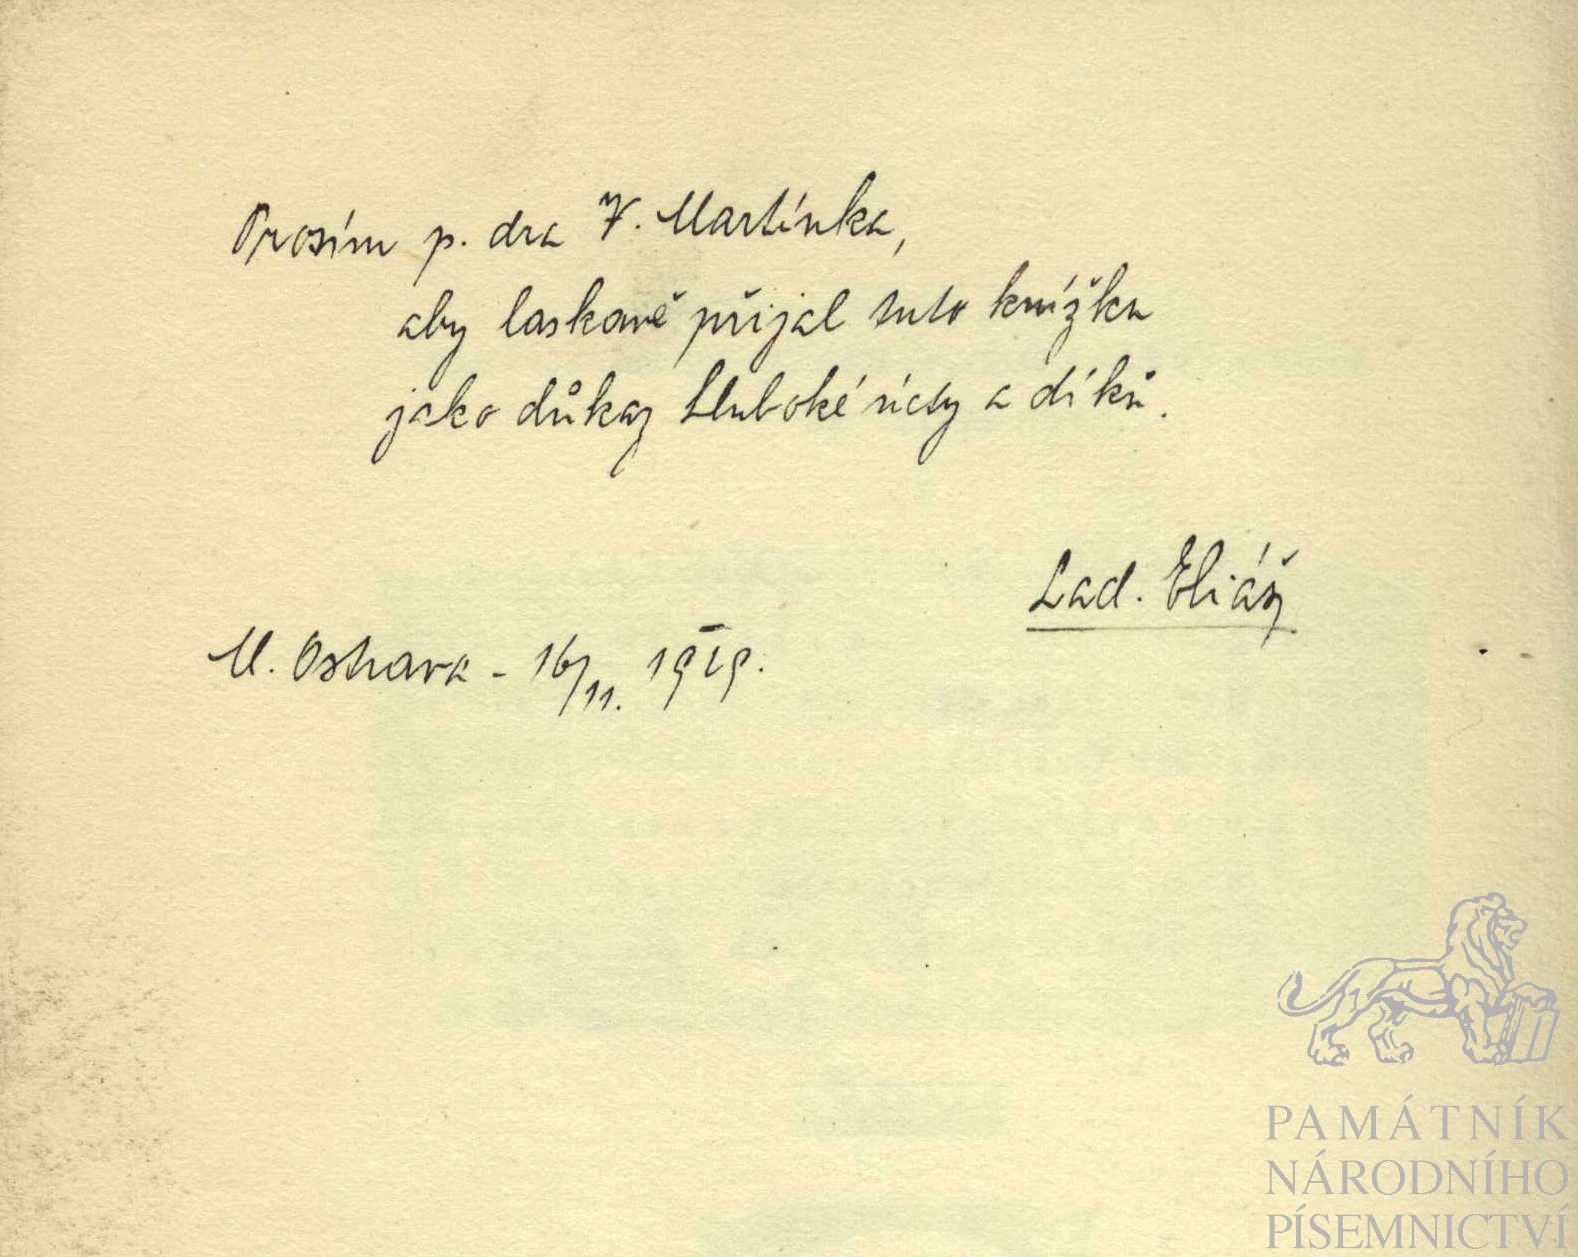 Prosím p. dra V. Martínka,
aby laskavě přijal tuto knížku
jako důkaz hluboké úcty a díků.
Lad. Eliáš
M. Ostrava - 16/11. 1919.
PAMÁTNÍK
NÁRODNÍHO
PÍSEMNICTVÍ